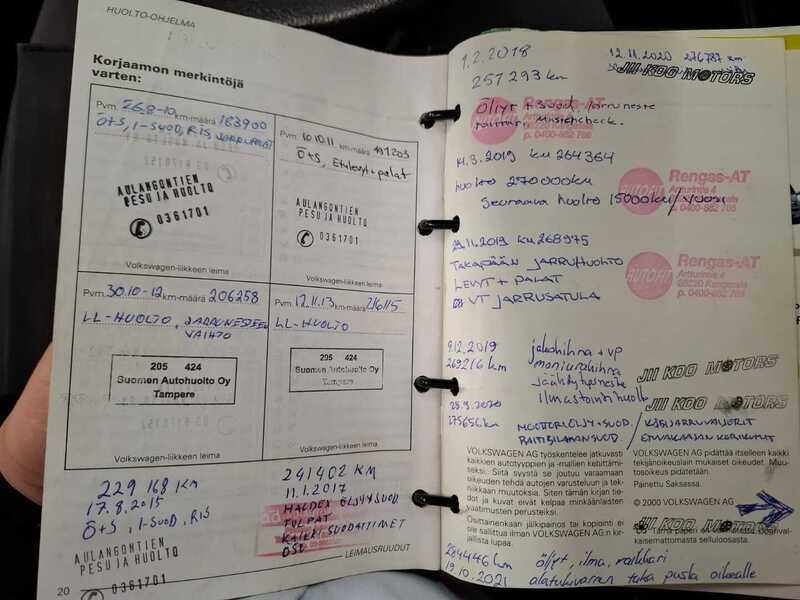 HUOLTO-OHJELMA
Korjaamon merkintöjä
varten:
Pvm. 26.8-10 km-määrä 183900
Ö+S, I-SUOD, RIS, JARRUPALAT
AULANGONTIEN
PESU JA HUOLTO
0361701
Volkswagen-liikkeen leima
Pvm. 10.10.11 km-määrä 197203
Ö+S, Etulevyt+palat
AULANGONTIEN
PESU JA HUOLTO
0361701
Volkswagen-liikkeen leima
Pvm. 30.10-12 km-määrä 206258
LL-HUOLTO, JARRUNESTEEN
VAIHTO
205 424
Suomen Autohuolto Oy
Tampere
Volkswagen-liikkeen leima
Pvm. 12.11.13 km-määrä 216115
LL-HUOLTO
205 424
Suomen Autohuolto Oy
Tampere
Volkswagen-liikkeen leima
229 168 KM
17.8.2015
Ö+S, I-SUOD, RIS
AULANGONTIEN
PESU JA HUOLTO
0361701
241402 KM
11.1.2017
HALDEX ÖLJY/SUOD
TULPAT
KAIKKI SUODATTIMET
LEIMAUSRUUDUT
20
1.2.2018
257 293 km
12.11.2020 276787 km
JII KOO MOTORS
Öljyt + suod, jarruneste
Rengas-AT
Arturintie 4
36220 Kangasala
p. 0400-862 705
14.3.2019 km 264364
huolto 270000km
Seuraava huolto 15000km/vuosi
AUTOFIT
Rengas-AT
Arturintie 4
36220 Kangasala
p. 0400-862 705
29.11.2019 km 268975
TAKAPÄÄN JARRUHUOLTO
LEVYT + PALAT
VT JARRUSATULA
AUTOFIT
Rengas-AT
Arturintie 4
36220 Kangasala
p. 0400-862 705
9.12.2019 jakohihna + vp
269216 km moniurahihna
jäähdytysneste
ilmastointihuolto
JII KOO MOTORS
28.9.2020
275656 km MOOTTORIÖLJY+SUOD.
RAITISILMANSUOD
JII KOO MOTORS
VOLKSWAGEN AG työskentelee jatkuvasti
kaikkien autotyyppien ja -mallien kehittämi-
seksi. Siitä syystä se joutuu varaamaan
oikeuden tehdä autojen varusteluun ja tek-
niikkaan muutoksia. Siten tämän kirjan tie-
dot ja kuvat eivät kelpaa minkäänlaisten
vaatimusten perusteiksi.
Osittainenkaan jälkipainos tai kopiointi ei
ole sallittua ilman VOLKSWAGEN AG:n kirjal-
lista lupaa.
VOLKSWAGEN AG pidättää itselleen kaikki
tekijänoikeuslain mukaiset oikeudet. Muu-
tosoikeus pidätetään.
Painettu Saksassa.
© 2000 VOLKSWAGEN AG
JII KOO MOTORS
284446 km öljyt, ilma, raikkari
19.10.2021 alatukivarren taka pusla oikealle